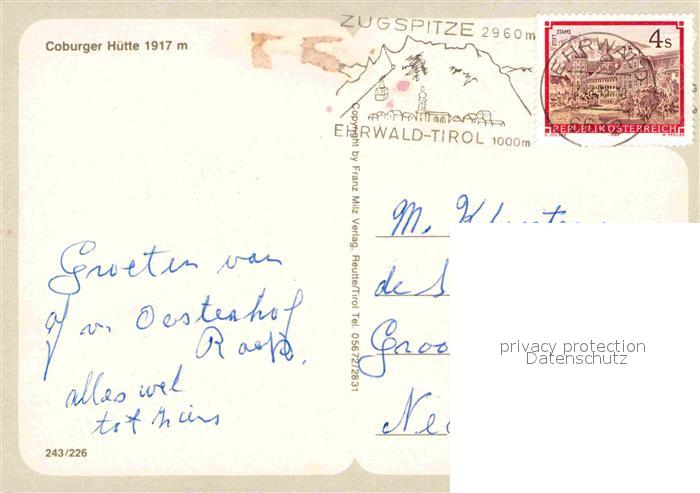 Coburger Hütte 1917 m
ZUGSPITZE 2960m
EHRWALD-TIROL 1000m
EHRWALD
STIFT STAMS
4s
REPUBLIK ÖSTERREICH
Copyright by Franz Milz Verlag, Reutte/Tirol Tel. 05672/2831
Groeten van
v. Oostenhof
alles wel
tot ziens
243/226
M.
de
Groo
Ne
privacy protection
Datenschutz